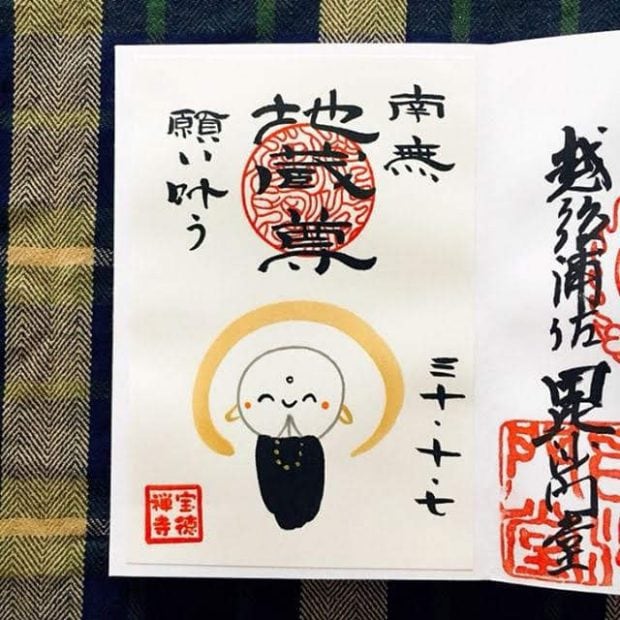 越後浦佐
毘沙門堂
南無
地蔵尊
願い叶う
三十・十・七
宝徳
禅寺